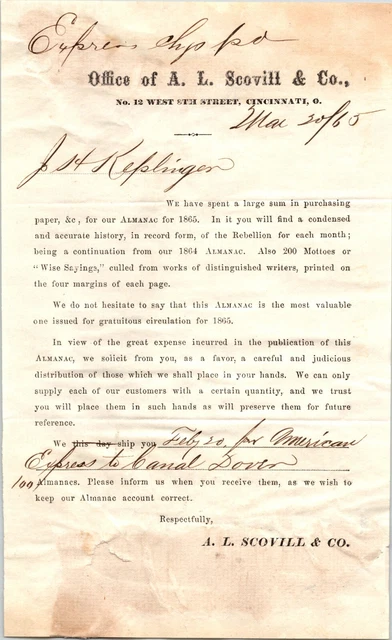 Express chgs pd
Office of A. L. Scovill & Co.,
No. 12 WEST 8TH STREET, CINCINNATI, O.
Mar 20/65
J H Keplinger
WE have spent a large sum in purchasing
paper, &c, for our ALMANAC for 1865. In it you will find a condensed
and accurate history, in record form, of the Rebellion for each month;
being a continuation from our 1864 ALMANAC. Also 200 Mottoes or
"Wise Sayings," culled from works of distinguished writers, printed on
the four margins of each page.
We do not hesitate to say that this ALMANAC is the most valuable
one issued for gratuitous circulation for 1865.
In view of the great expense incurred in the publication of this
ALMANAC, we solicit from you, as a favor, a careful and judicious
distribution of those which we shall place in your hands. We can only
supply each of our customers with a certain quantity, and we trust
you will place them in such hands as will preserve them for future
reference.
We this day ship you Feby 20, for American
Express to Canal Dover
100 Almanacs. Please inform us when you receive them, as we wish to
keep our Almanac account correct.
Respectfully,
A. L. SCOVILL & CO.